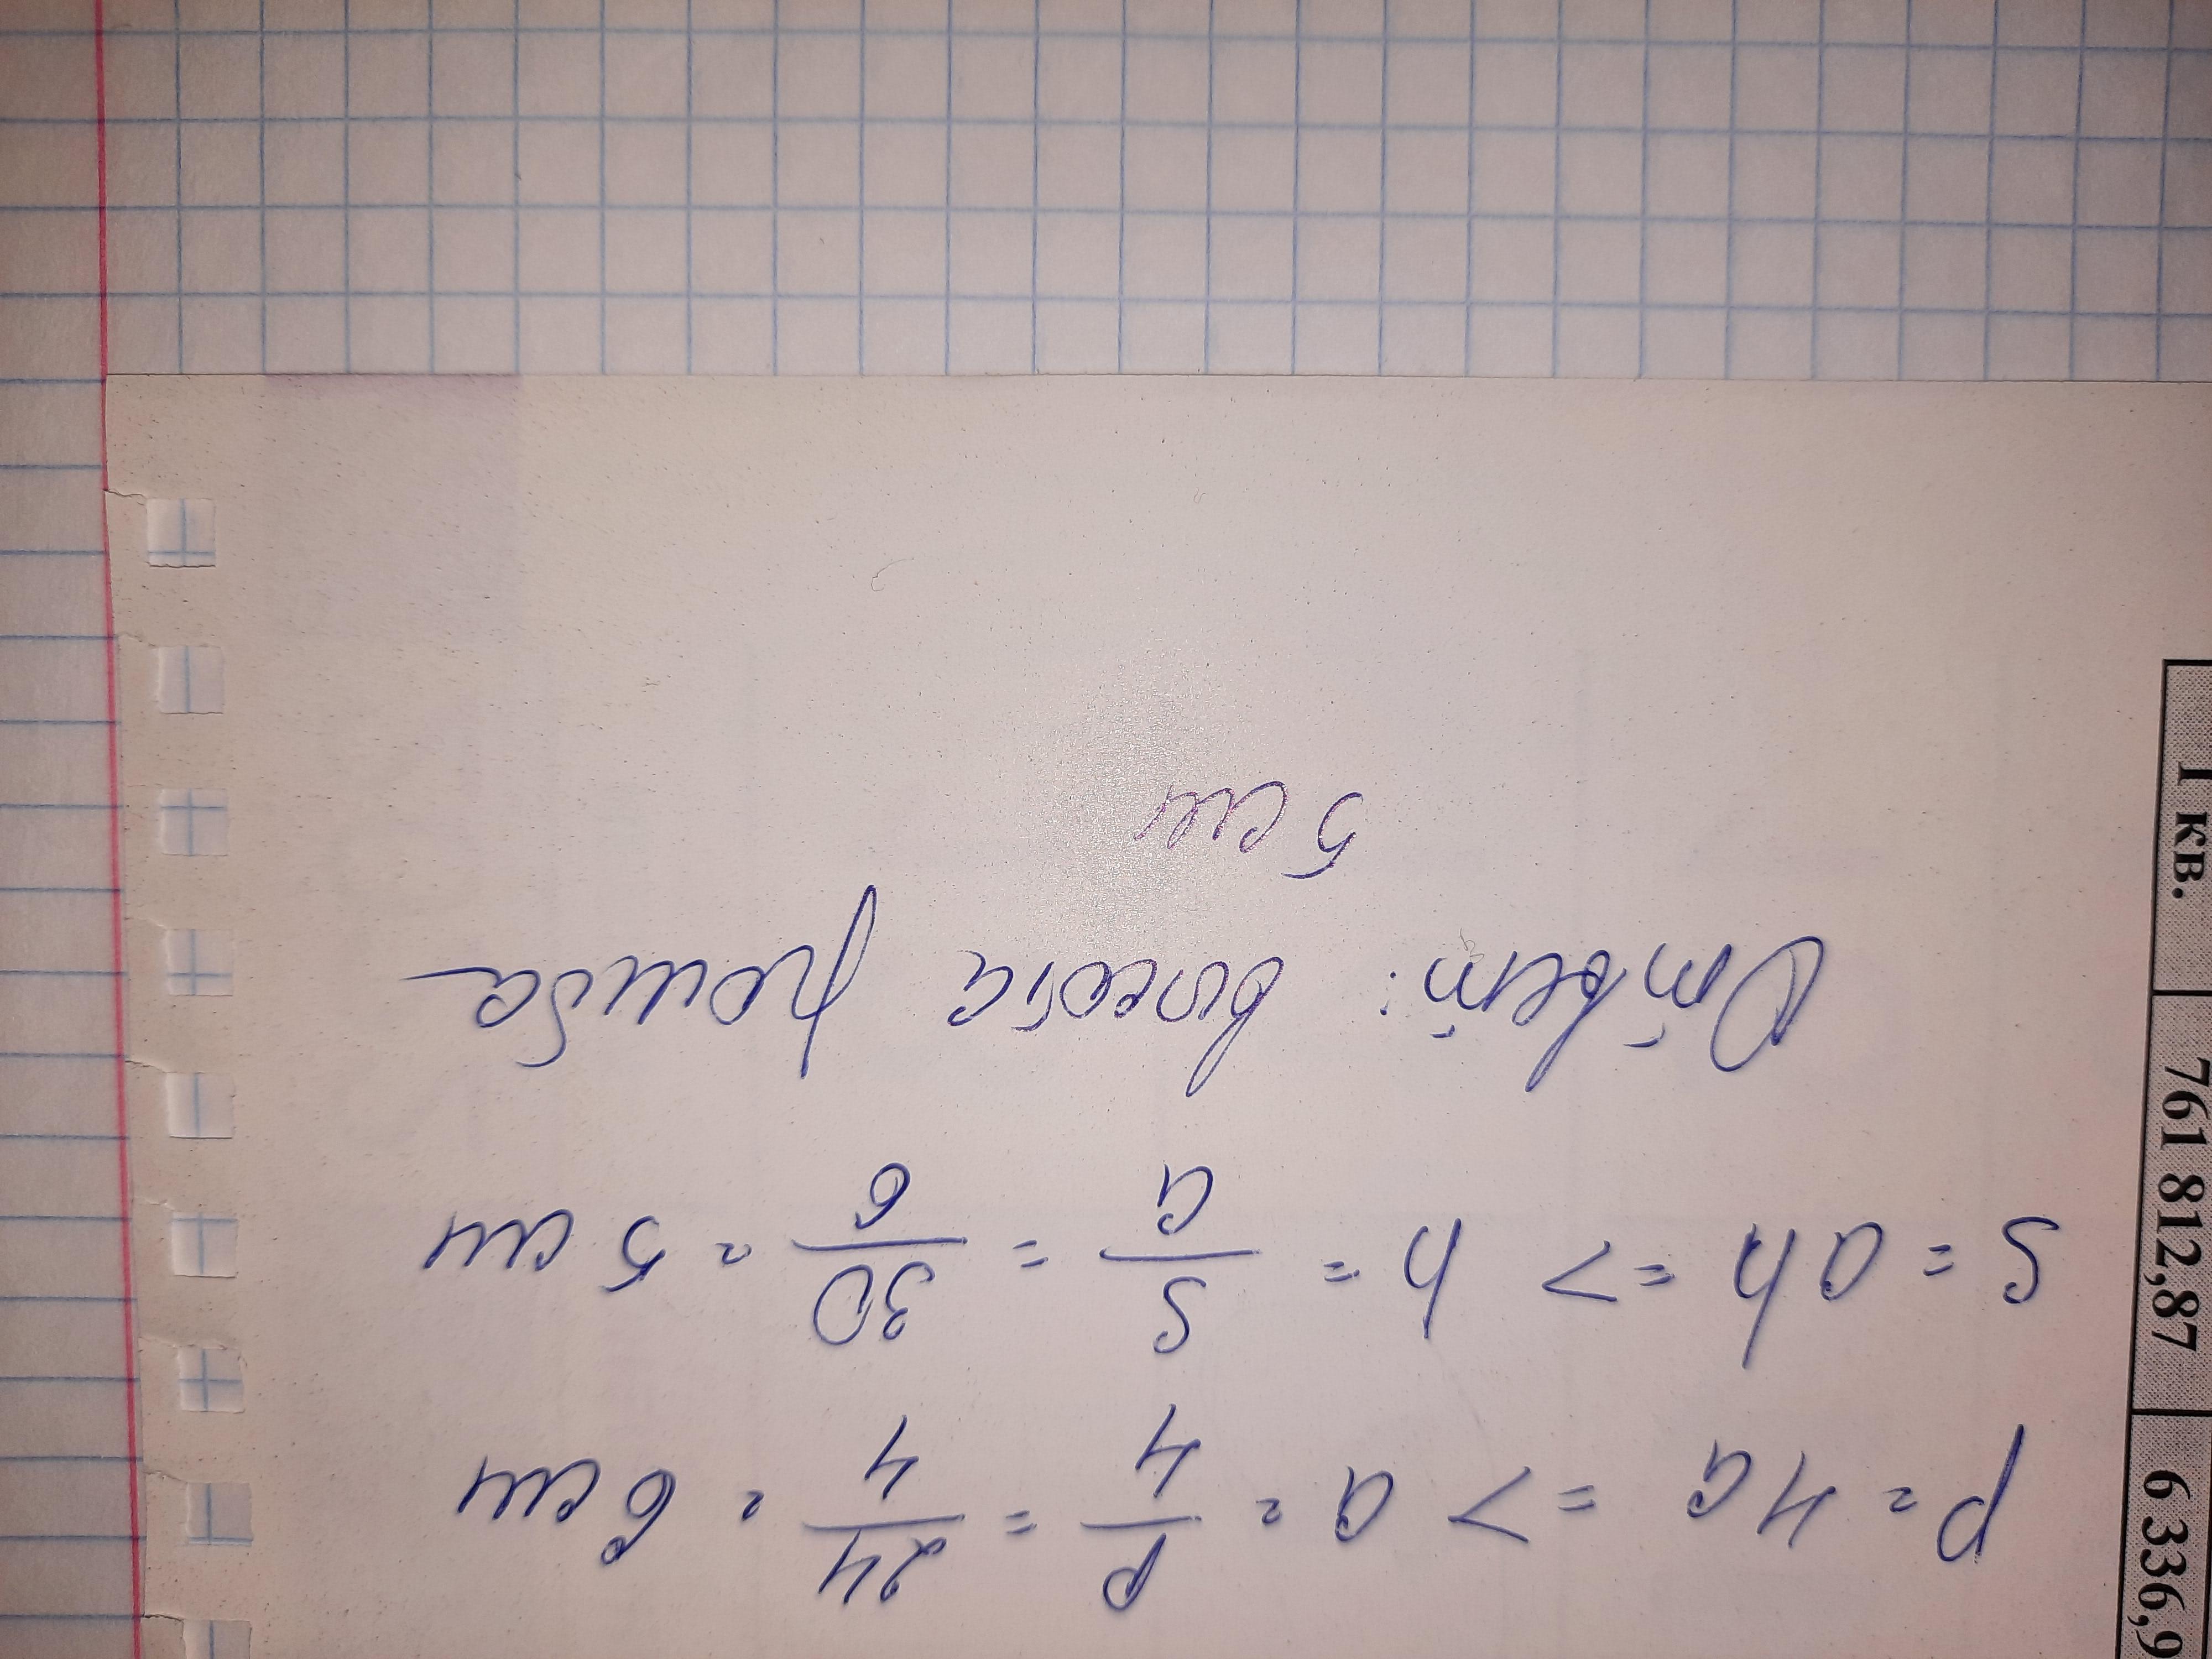 P = 4a => a = P/4 = 24/4 = 6 см
S = ah => h = S/a = 30/6 = 5 см
Ответ: высота ромба
5 см
1 кв.
761 812,87
6 336,9